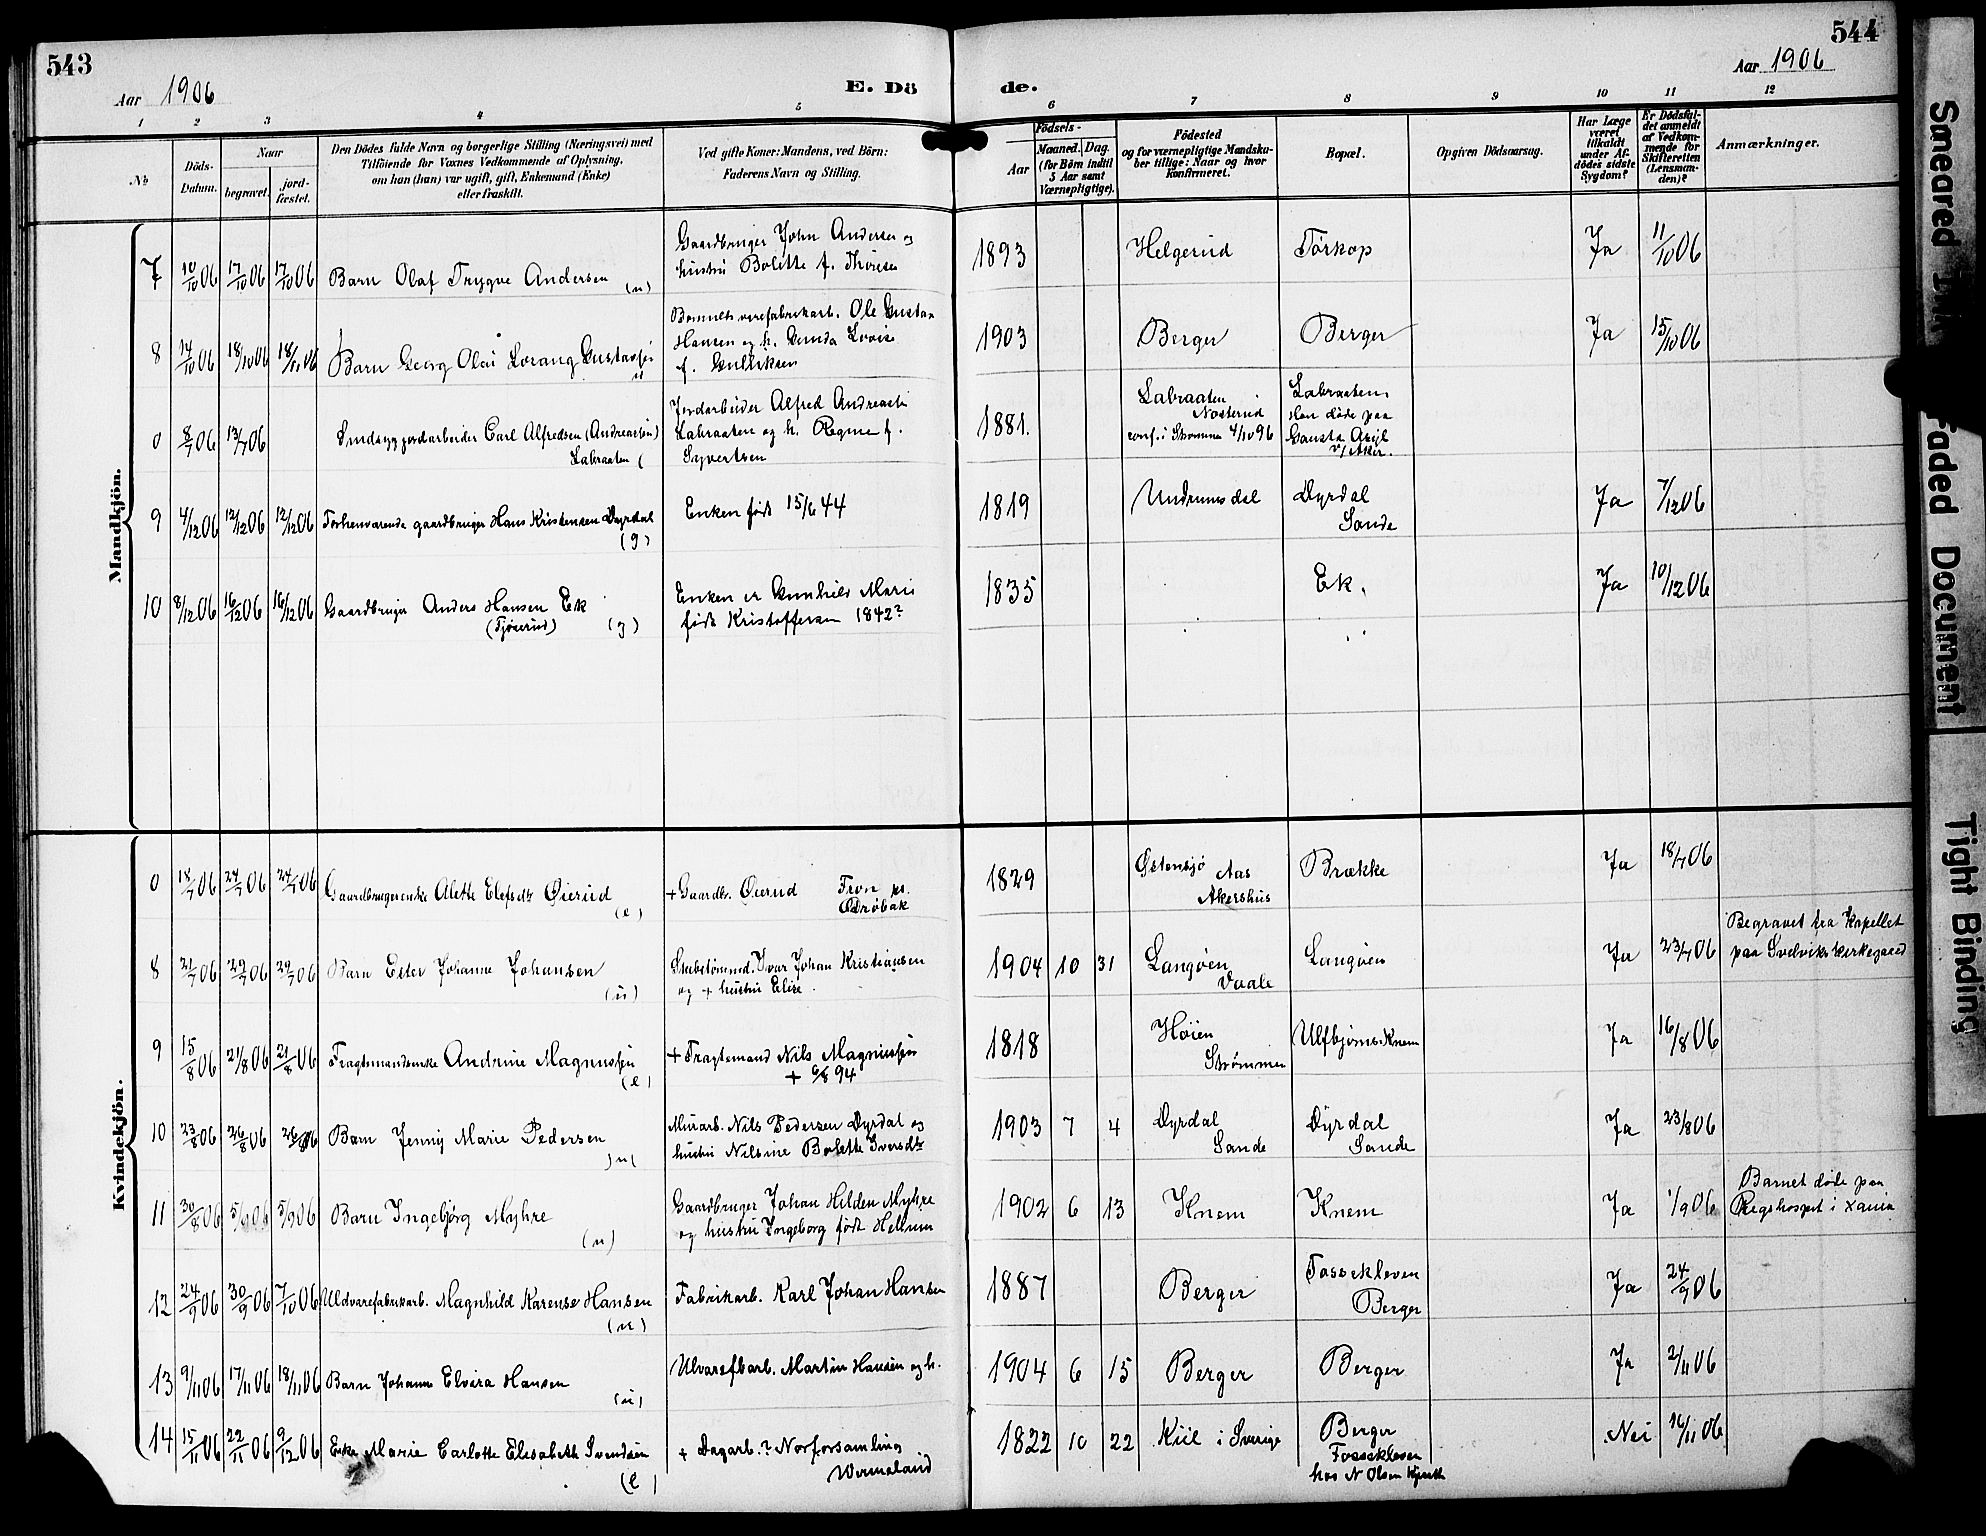 543
544
Aar 1906
E. Dö
de.
Aar 1906
1 2 3 4 5 6 7 8 9 10 11 12
No
Döds-
Datum.
Naar
begravet.
jord-
fæstet.
Den Dödes fulde Navn og borgerlige Stilling (Næringsvei) med
Tilföiende for Voxnes Vedkommende af Oplysning,
om han (hun) var ugift, gift, Enkemand (Enke)
eller fraskilt.
Ved gifte Koner: Mandens, ved Börn:
Faderens Navn og Stilling.
Födsels-
Aar
Maaned. Dag.
(for Börn indtil
5 Aar samt
Værnepligtige).
Födested
og for værnepligtige Mandska-
ber tillige: Naar og hvor
Konfirmeret.
Bopæl.
Opgiven Dödsaarsag.
Har Læge
været
tilkaldt
under Af-
dödes sidste
Sygdom?
Er Dödsfal-
det anmeldt
af Vedkom-
mende for
Skifteretten
(Lensman-
den)?
Anmærkninger.
Mandkjön.
7 10/10 06 17/10 06 17/10 06 Barn Olaf Trygve Andersen (u)
Gaardbruger John Andersen og
hustru Bolette f. Thoresen
1893 Helgerud Tørkop Ja 11/10 06
8 14/10 06 18/10 06 18/11 06 Barn Georg Olai Lorang Gustavsen
u
Bomuldsvarefabrikarb. Ole Gustav
Hansen og h. Gunda Lovise
f. Gulliksen
1903 Berger Berger Ja 15/10 06
0 8/7 06 13/7 06 Sindssyg jordarbeider Carl Alfredsen (Andreassen)
Labraaten
Jordarbeider Alfred Andreas
Labraaten og h. Regine f.
Syvertsen
1881. Labraaten
Nosterud
conf. i Strømmen 4/10 96
Labraaten
Han døde paa
Gausta Asyl
v/ Aker.
9 4/12 06 12/12 06 12/12 06 Forhenværende gaardbruger Hans Kristensen Dyrdal
(g)
Enken født 15/6 44
1819 Undrumsdal Dyrdal
Sande
Ja 7/12 06
10 8/12 06 16/12 06 16/12 06 Gaardbruger Anders Hansen Ek
(Tjøserud) (g)
Enken er Gunhild Marie
født Kristoffersen 1842?
1835 Ek. Ja 10/12 06
Kvindekjön.
0 18/7 06 24/7 06 24/7 06 Gaardbrugerenke Alette Elefsdt Øierud
(e)
+ Gaardbr. Øierud Fron pr.
Drøbak
1829 Østensjø Aas
Akershus
Brække Ja 18/7 06
8 21/7 06 29/7 06 29/7 06 Barn Ester Johanne Johansen
(u)
Skibstømmd. Ivar Johan Kristiansen
og + hustru Elise.
1904 10 31 Langøen
Vaale
Langøen Ja 23/7 06
Begravet fra Kapellet
paa Svelviks kirkegaard
9 15/8 06 21/8 06 21/8 06 Fragtemandsenke Andrine Magnussen
(e)
+ Fragtemand Nils Magnussen
+ 6/8 94
1818 Høien
Strømmen
Ulfbjørns Knem Ja 16/8 06
10 23/8 06 26/8 06 26/8 06 Barn Jenny Marie Pedersen
(u)
Murarb. Nils Pedersen Dyrdal og
hustru Nilsine Bolette Iversdtr
1903 7 4 Dyrdal
Sande
Dyrdal
Sande
Ja 23/8 06
11 30/8 06 5/9 06 5/9 06 Barn Ingebjørg Myhre
(u)
Gaardbruger Johan Helden Myhre
og hustru Ingeborg født Hellum
1902 6 13 Knem Knem Ja 1/9 06
Barnet døde paa
Rigshospit i Xania
12 24/9 06 30/9 06 7/10 06 Uldvarefabrikarb. Magnhild Karense Hansen
(u)
Fabrikarb. Karl Johan Hansen
1887 Berger Fossekleven
Berger
Ja 24/9 06
13 9/11 06 17/11 06 18/11 06 Barn Johanne Elvira Hansen
(u)
Ulvarefbarb. Martin Hansen og h.
1904 6 15 Berger Berger Ja 2/11 06
14 15/11 06 22/11 06 9/12 06 Enke Marie Carlotte Elisabeth Svendsen
(e)
+ Dagarb.? Norforsamling
Wermeland
1822 10 22 Kiil i Sverige Berger
Fossekleven
hos N Olsen
Nei 16/11 06
Smeared
Faded Document
Tight Binding